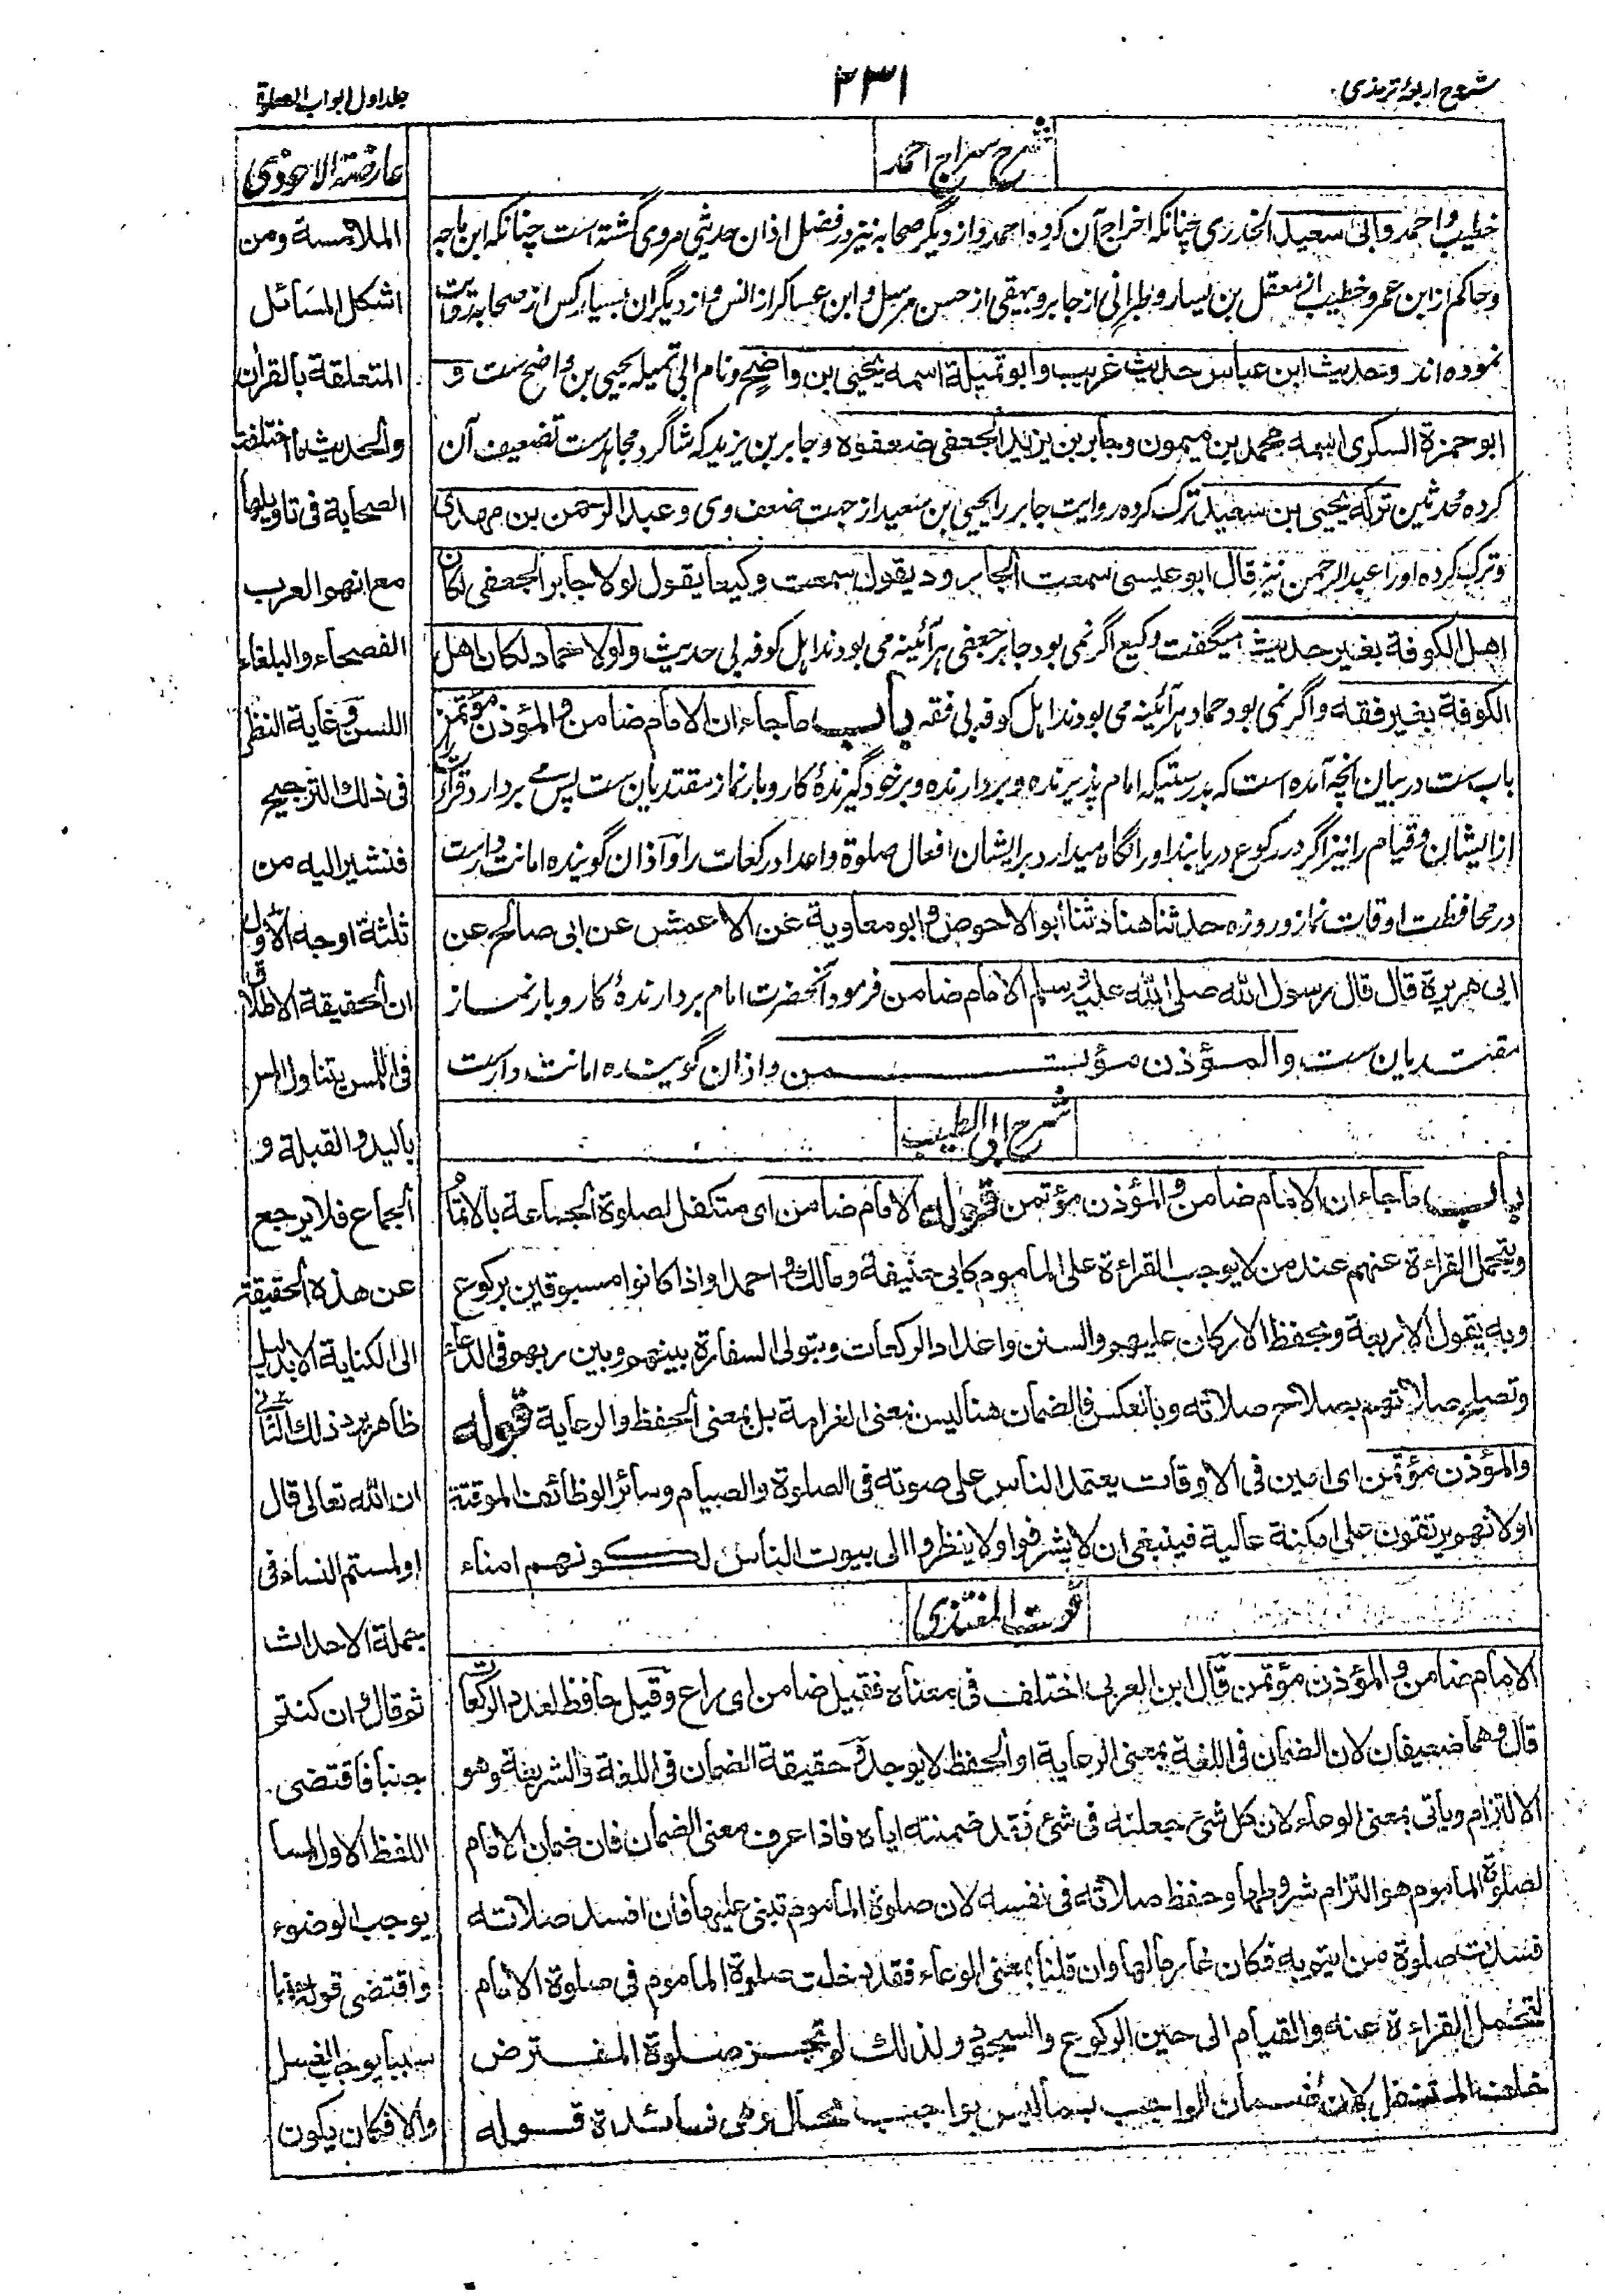 شروح اربعۂ ترمذی
۲۳۱
جلد اول ابواب الصلوة
شرح سراج احمد
خطیب واحمد وابی سعید الخدری چنانکہ اخراج آن کردہ احمد واز دیگر صحابہ نیز در فضل اذان حدیثی مروی گشتہ است چنانکہ ابن ماجہ
وحاکم از ابن عمر وخطیب از معقل بن یسار وطبرانی از جابر وبیہقی از حسن مرسل وابن عساکر از انس واز دیگران بسیار کس از صحابہ روایت
نمودہ اند وحدیث ابن عباس حدیث غریب وابو تمیلة اسمه یحیی بن واضح ونام ابی تمیلہ یحیی بن واضح ست و
ابو حمزة السکری اسمه محمد بن میمون وجابر بن یزید الجعفی ضعفوه وجابر بن یزید کہ شاگرد مجاہد ست تضعیف آن
کردہ محدثین ترکه یحیی بن سعید ترک کردہ روایت جابر را یحیی بن سعید از جہت ضعف وی وعبد الرحمن بن مهدی
وترک کردہ اورا عبد الرحمن نیز قال ابو عیسی سمعت الجارود یقول سمعت وکیعا یقول لولا جابر الجعفی لکان
اهل الکوفة بغیر حدیث میگفت وکیع اگر نمی بود جابر جعفی ہر آئینہ می بودند اہل کوفہ بی حدیث ولولا حماد لکان اهل
الکوفة بغیر فقه واگر نمی بود حماد ہر آئینہ می بودند اہل کوفہ بی فقہ باب ما جاء ان الامام ضامن والمؤذن مؤتمن
باب ست در بیان آنچہ آمدہ است کہ بدرستیکہ امام پذیرندہ وبردارندہ وبر خود گیرندۂ کاروبار نماز مقتدیان ست پس می بردارد قرأت
از ایشان وقیام را نیز اگر در رکوع دریابند اورا ونگاہ میدارد بر ایشان افعال صلوة واعداد رکعات را واذان گویندہ امانت دارست
در محافظت اوقات نماز وروزہ حدثنا هناد ثنا ابو الاحوص وابو معاویة عن الاعمش عن ابی صالح عن
ابی هریرة قال قال رسول الله صلی الله علیه وسلم الامام ضامن فرمود آنحضرت امام بردارندۂ کاروبار نماز
مقتدیان ست والمؤذن مؤتمن واذان گویندہ امانت دارست
شرح ابی الطیب
باب ما جاء ان الامام ضامن والمؤذن مؤتمن قوله الامام ضامن ای متکفل لصلوة الجماعة بالاتمام
ویتحمل القراءة عنهم عند من لا یوجب القراءة علی المأموم کابی حنیفة ومالك واحمد او اذا کانوا مسبوقین برکوع
وبه یقول الاربعة ویحفظ الارکان علیهم والسنن واعداد الرکعات ویتولی السفارة بینهم وبین ربهم فی الدعاء
وتصلح صلاتهم بصلاح صلاته وبالعکس فالضمان هنا لیس بمعنی الغرامة بل بمعنی الحفظ والرعایة قوله
والمؤذن مؤتمن ای امین فی الاوقات یعتمد الناس علی صوته فی الصلوة والصیام وسائر الوظائف الموقتة
اولانهم یرتقون علی امکنة عالیة فینبغی ان لا یشرفوا ولا ینظروا الی بیوت الناس لکونهم امناء
قوت المغتذی
الامام ضامن والمؤذن مؤتمن قال ابن العربی اختلف فی معناه فقیل ضامن ای راع وقیل حافظ لعدد الرکعات
قال وهما ضعیفان لان الضمان فی اللغة بمعنی الرعایة او الحفظ لا یوجد و حقیقة الضمان فی اللغة والشریعة وهو
الالتزام ویأتی بمعنی الوعاء لان کل شئ جعلته فی شئ فقد ضمنته ایاه فاذا عرف معنی الضمان فان ضمان الامام
لصلوة المأموم هو التزام شروطها وحفظ صلاته فی نفسه لان صلوة المأموم تبنی علیها فان افسد صلاته
فسدت صلوة من ائتم به فکان غارما لها وان قلنا بمعنی الوعاء فقد دخلت صلوة المأموم فی صلوة الامام
لتحمل القراءة عنه والقیام الی حین الرکوع والسجود ولذلك لم تجز صلوة المفترض
خلف المتنفل لان ضمان الواجب بما لیس بواجب محال وهی فائدة قوله
عارضة الاحوذی
الملامسة ومن
اشکل المسائل
المتعلقة بالقران
والحدیث ما اختلفت
الصحابة فی تاویلها
مع انهم العرب
الفصحاء والبلغاء
اللسن وغایة النظر
فی ذلك الترجیح
فنشیر الیه من
ثلثة اوجه الاول
ان الحقیقة الاطلاق
فی اللمس یتناول اللمس
بالید والقبلة و
الجماع فلا یرجع
عن هذه الحقیقة
الی الکنایة الا بدلیل
ظاهر یرد ذلك الثانی
ان الله تعالی قال
اولمستم النساء فی
جملة الاحداث
ثم قال وان کنتم
جنبا فاقتضی
اللفظ الاول لمسا
یوجب الوضوء
واقتضی قوله جنبا
سببا یوجب الغسل
والا فکان یکون